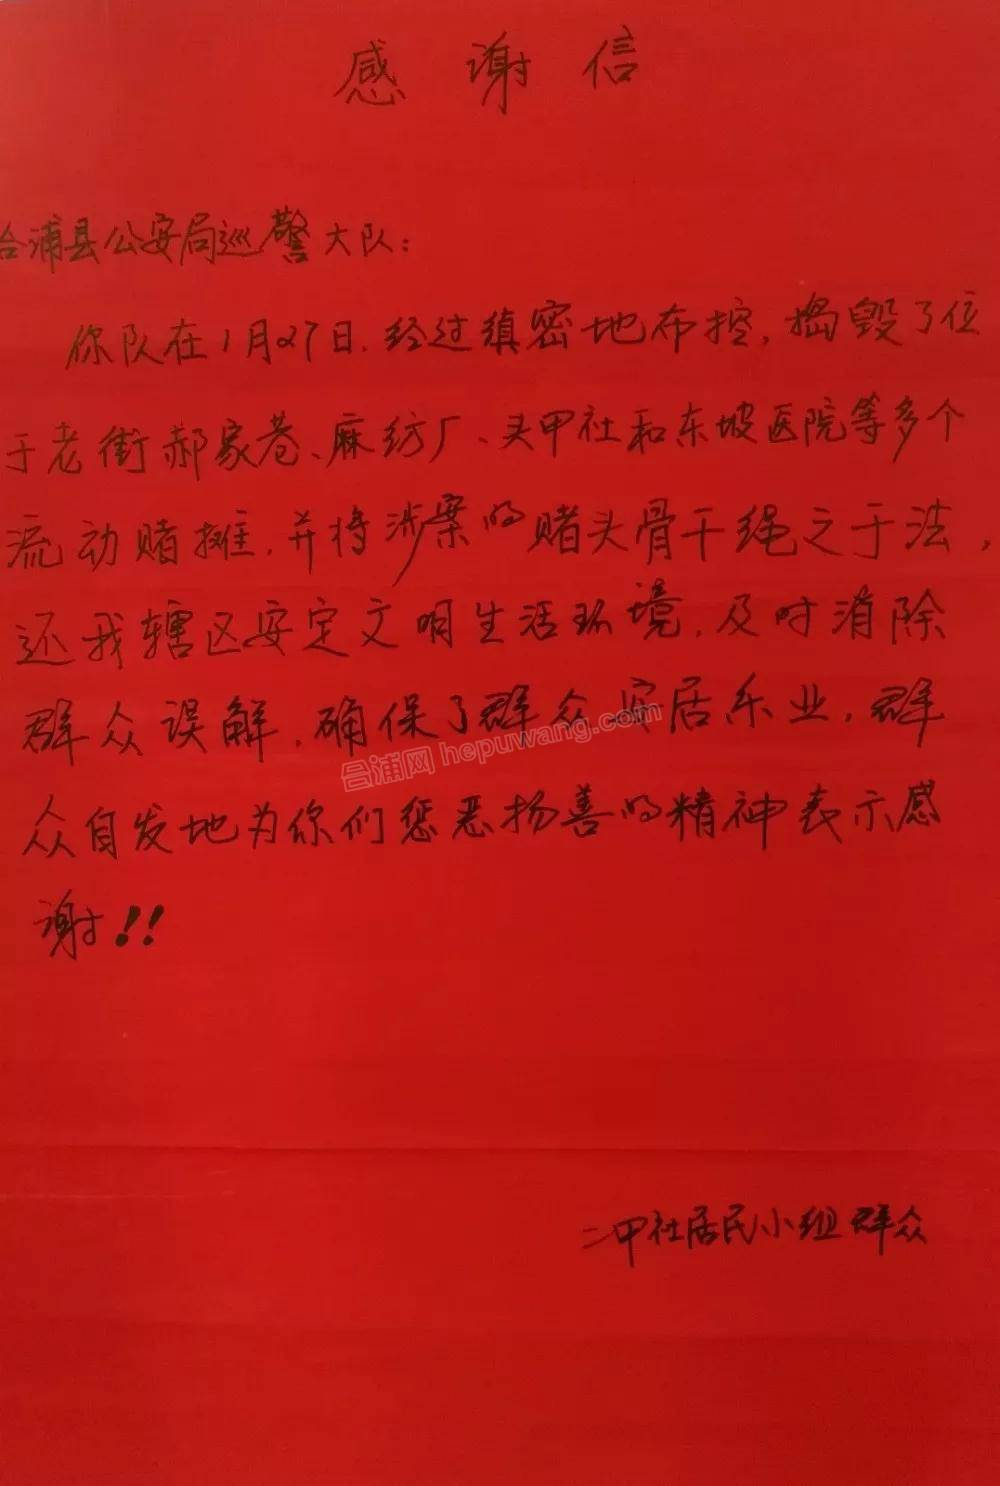 感谢信
合浦县公安局巡警大队：
你队在1月27日，经过缜密地布控，捣毁了位
于老街郝家巷、麻纺厂、头甲社和东坡医院等多个
流动赌摊，并将涉案的赌头骨干绳之于法，
还我辖区安定文明生活环境，及时消除
群众误解，确保了群众安居乐业，群
众自发地为你们惩恶扬善的精神表示感
谢！！
合浦网 hepuwang.com
二甲社居民小组群众